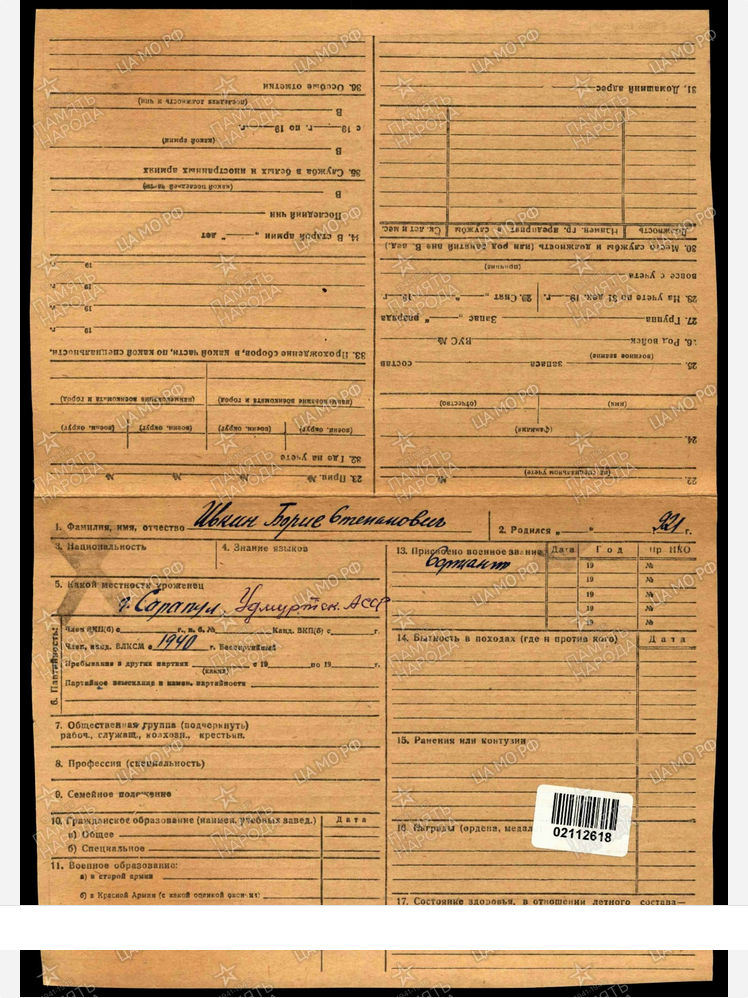 36. Особые отметки
В
(последняя должность и чин)
с 19 г. по 19 г.
В
(какой армии)
35. Служба в белых и иностранных армиях
В
(какой последней части)
Последний чин
14. В старой армии „ “ лет
19 г.
19 г.
19 г.
19 г.
33. Прохождение сборов, в какой части, по какой специальности.
(наименование военкомата и город)
(наименование военкомата и город)
(воен. округ)
(воен. округ)
(воен. округ)
(воен. округ)
32. Где на учете
23. Прип. № № № №
31. Домашний адрес
Должность
Наимен. гр. предприят. и службы
Ск. лет и мес.
30. Место службы и должность (или род занятий вне В. вед.)
(причина)
вовсе с учета
28. На учете по 31 дек. 19 г. 29. Снят „ “ 19 г.
27. Группа Запас „ “ разряда
26. Род войск ВУС №
(военное звание)
25. состав запаса
(имя) (отчество)
(фамилия)
24.
(на специальном учете)
22. №
1. Фамилия, имя, отчество Ивкин Борис Степанович
2. Родился „ “ 921 г.
3. Национальность
4. Знание языков
5. Какой местности уроженец
г. Сарапул, Удмуртск. АССР
6. Партийность:
Член ВКП(б) с г., п. б. № Канд. ВКП(б) с г.
Член, канд. ВЛКСМ с 1940 г. Беспартийный
Пребывание в других партиях с 19 по 19 г.
(каких)
Партийные взыскания и измен. партийности
7. Общественная группа (подчеркнуть)
рабоч., служащ., колхозн., крестьян.
8. Профессия (специальность)
9. Семейное положение
10. Гражданское образование (наимен. учебных завед.)
Дата
а) Общее
б) Специальное
11. Военное образование:
а) в старой армии
б) в Красной Армии (с какой оценкой окончил)
13. Присвоено военное звание
Дата
Год
Пр. НКО
Сержант
19 №
19 №
19 №
19 №
19 №
14. Бытность в походах (где и против кого)
Дата
15. Ранения или контузии
16. Награды (ордена, медал
02112618
17. Состояние здоровья, в отношении летного состава—
ПАМЯТЬ НАРОДА
ЦАМО.РФ